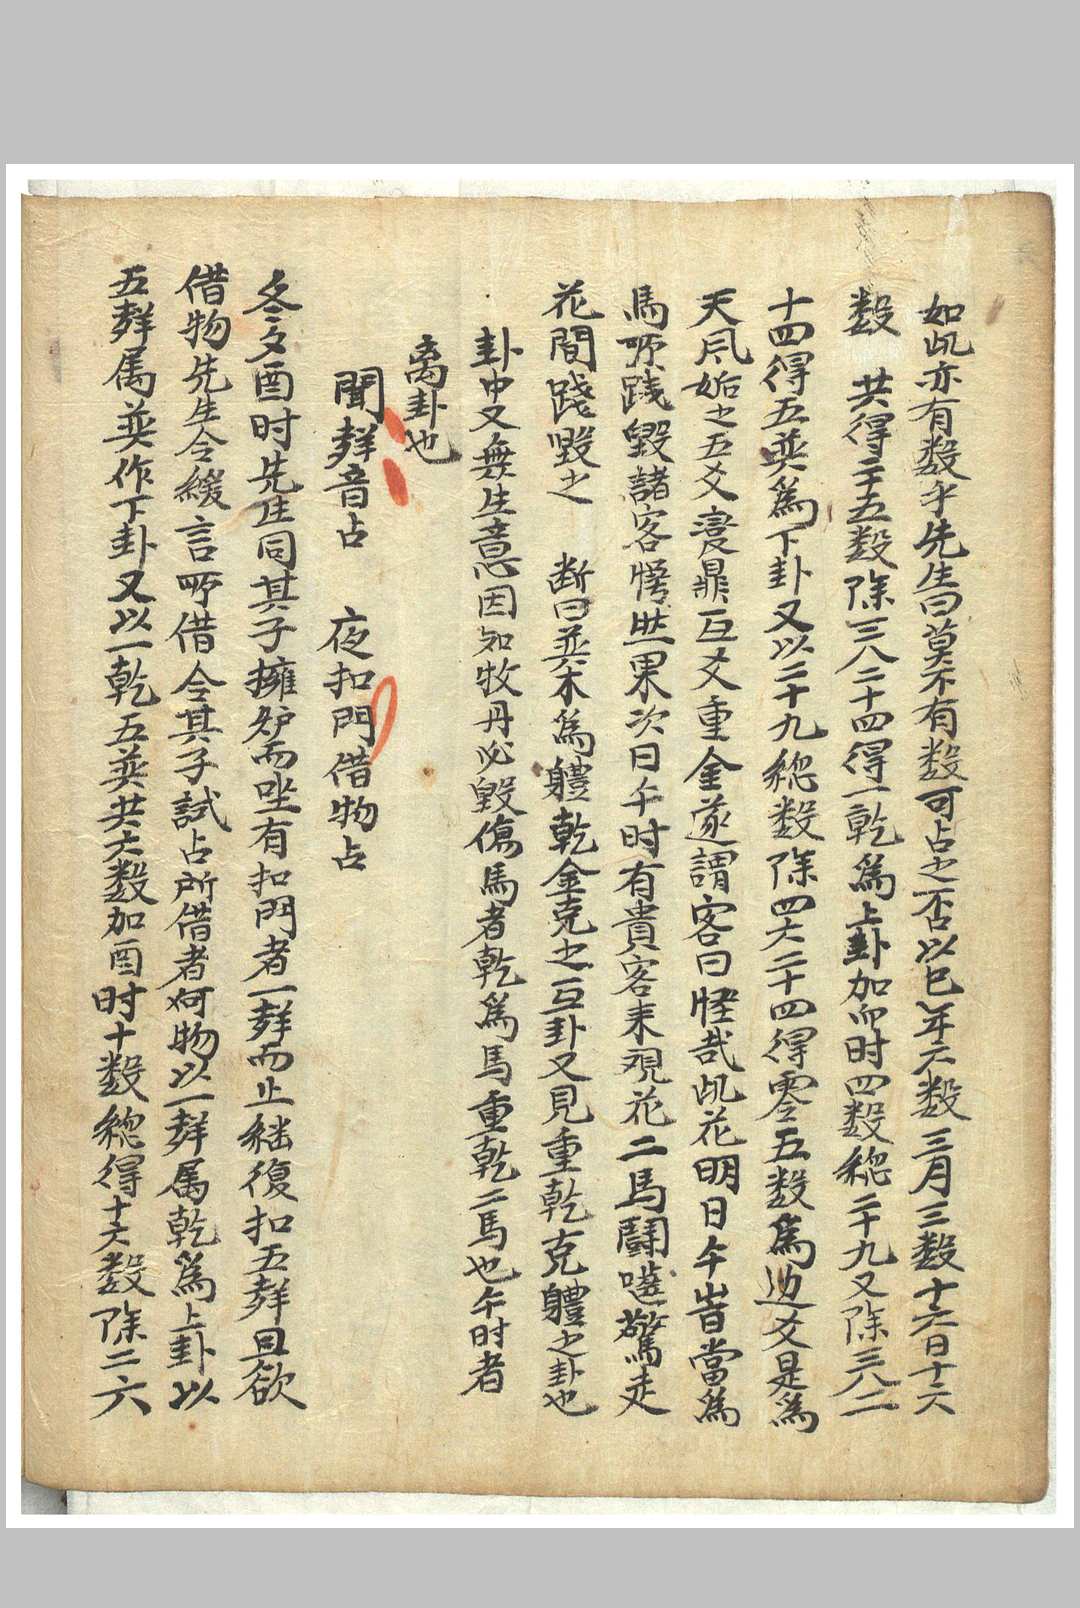 如此亦有数乎先生曰莫不有数可占之否以巳年六数三月三数十六日十六
数 共得二十五数除三八二十四得一乾為上卦加卯时四数緫二十九又除三八二
十四得五巽為下卦又以二十九緫数除四六二十四得零五数為边爻是為
天风姤之五爻变鼎互爻重金遂謂客曰怪哉此花明日午旹當為
馬所践毁諸客愕然果次日午时有貴客来观花二馬鬪嚙驚走
花間踐毁之 断曰巽木為軆乾金克之互卦又見重乾克軆之卦也
卦中又無生意因知牧丹必毁傷馬者乾為馬重乾二馬也午时者
离卦也
聞群音占 夜扣門借物占
冬夕酉时先生同其子擁炉而坐有扣門者一群而止継復扣五群且欲
借物先生令緩言所借令其子試占所借者何物以一群属乾為上卦以
五群属巽作下卦又以一乾五巽共六数加酉时十数緫得十六数除二六